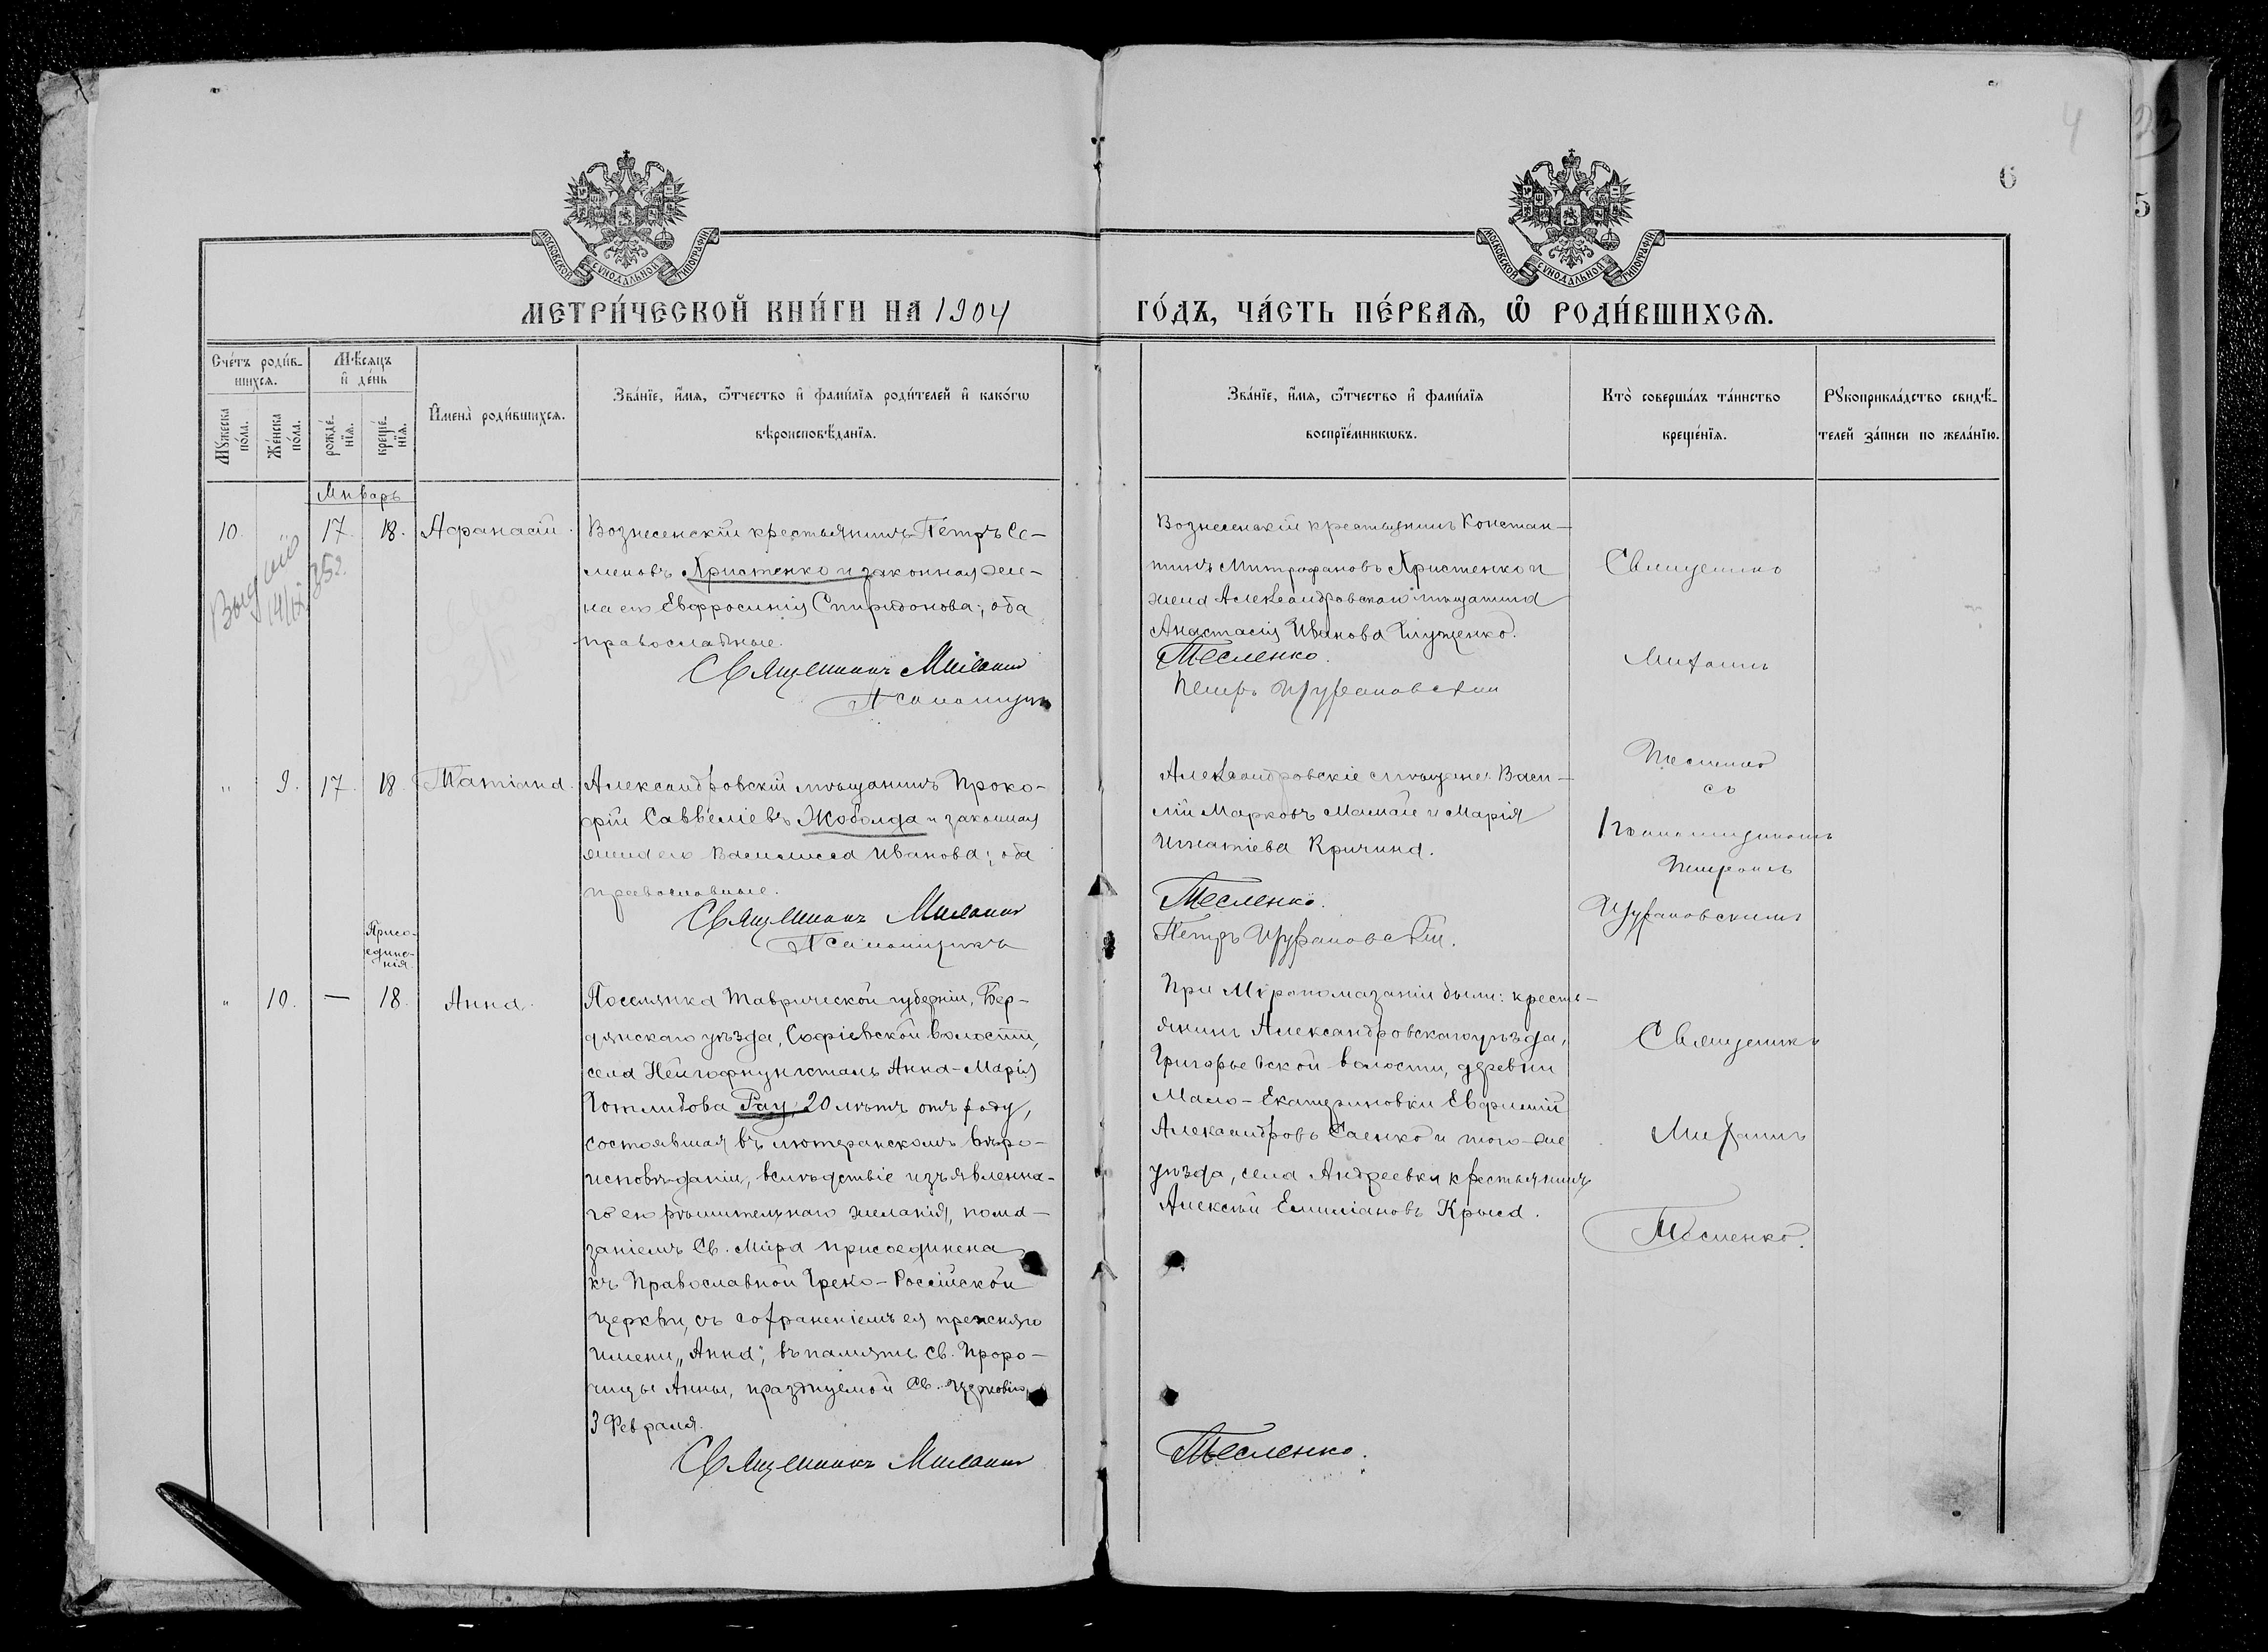 4
6
5
МОСКОВСКОЙ СѴНОДАЛЬНОЙ ТИПОГРАФІИ
МОСКОВСКОЙ СѴНОДАЛЬНОЙ ТИПОГРАФІИ
МЕТРИ́ЧЕСКОЙ КНИ́ГИ НА 1904
ГО́ДЪ, ЧА́СТЬ ПЕ́РВАѦ, Ѡ҆ РОДИ́ВШИХСѦ.
Сче́тъ роди́в-
шихсѧ.
Мꙋжеска по́ла.
Же́нска по́ла.
Мѣ́сяцъ
и҆ де́нь
рожде́-
нїѧ.
креще́-
нїѧ.
И҆мена̀ роди́вшихсѧ.
Зва́нїе, и҆́мѧ, ѻ҆́тчество и҆ фами́лїѧ роди́телей и҆ како́гѡ
вѣроисповѣ́данїѧ.
Зва́нїе, и҆́мѧ, ѻ҆́тчество и҆ фами́лїѧ
воспрїе́мникѡвъ.
Кто̀ соверша́лъ та́инство
креще́нїѧ.
Рꙋкоприкла́дство свидѣ́-
телей за́писи по жела́нїю.
Январь
10. " 17. 18. Афанасій.
Вознесенскій крестьянинъ Петръ Се-
меновъ Христенко и законная же-
на его Евфросинія Спиридонова; оба
православные.
Священникъ Михаилъ
Псаломщикъ
Вознесенскій крестьянинъ Констан-
тинъ Митрофановъ Христенко и
жена Александровскаго мѣщанина
Анастасія Иванова
Тесленко.
Петръ
Священникъ
Михаилъ
Тесленко
съ
Псаломщикомъ
Петромъ
" 9. 17. 18. Татіана.
Александровскій мѣщанинъ Проко-
фій Савveліевъ Жоболда и законная
жена его Василисса Иванова; оба
православные.
Священникъ Михаилъ
Псаломщикъ
Александровскіе мѣщане: Васи-
лій Марковъ Мамай и Марія
Игнатіева Кричина.
Тесленко.
Петръ
Присо-
едине-
нія.
" 10. — 18. Анна.
Поселянка Таврической губерніи, Бер-
дянскаго уѣзда, Софіевской волости,
села Нейгофнунгсталь Анна-Марія
Готлибова Рау, 20 лѣтъ отъ роду,
состоявшая въ лютеранскомъ вѣро-
исповѣданіи, вслѣдствіе изъявленна-
го ею рѣшительнаго желанія, пома-
заніемъ Св. Мѵра присоединена
къ Православной Греко-Россійской
Церкви, съ сохраненіемъ ея прежняго
имени „Анна", въ память Св. Проро-
чицы Анны, празднуемой Св. Церковію
3 Февраля.
Священникъ Михаилъ
При Мѵропомазаніи были: кресть-
янинъ Александровскаго уѣзда,
Григорьевской волости, деревни
Мало-Екатериновки Евфимій
Александровъ Саенко и того-же
уѣзда, села Андреевки крестьянинъ
Алексѣй Емиліановъ Крыса.
Тесленко.
Священникъ
Михаилъ
Тесленко.